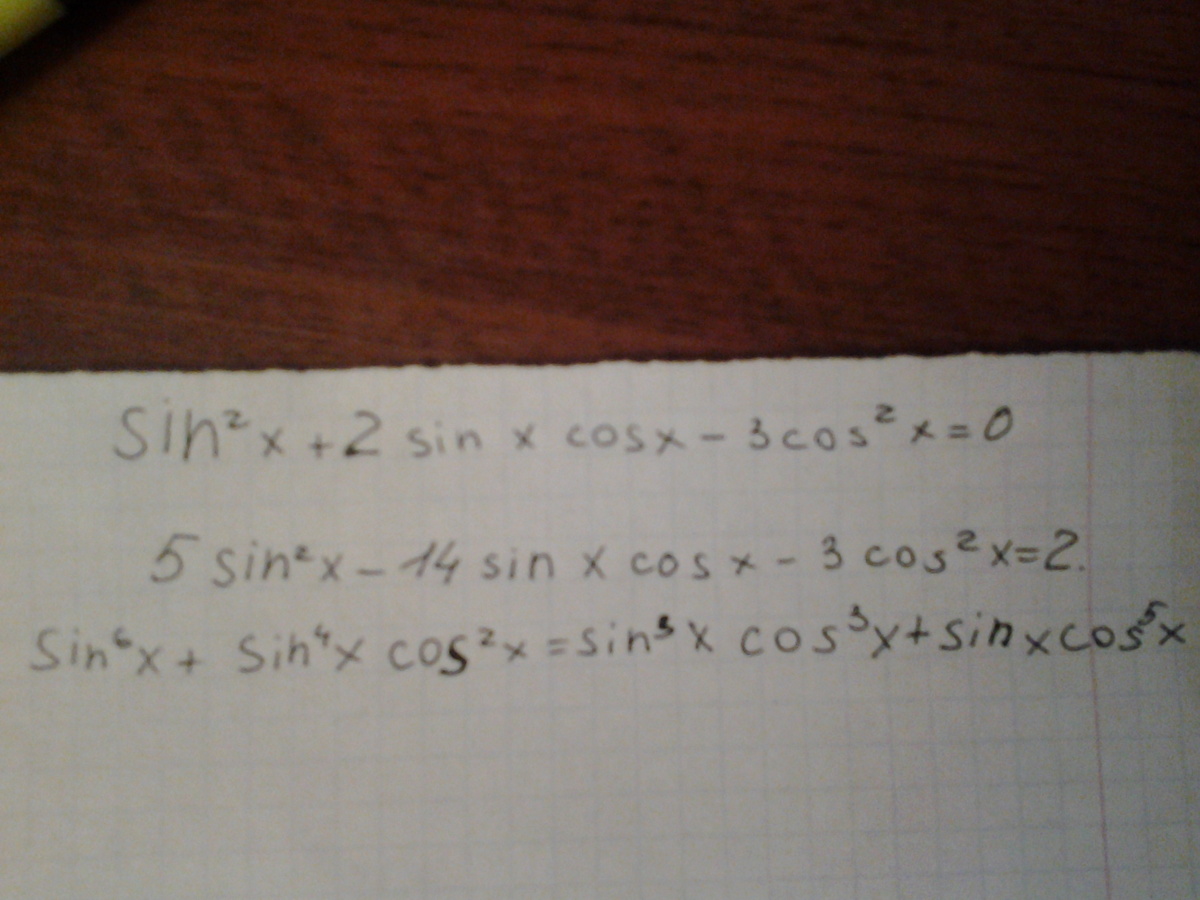 sin²x + 2 sin x cosx - 3cos²x = 0
5 sin²x - 14 sin x cos x - 3 cos²x = 2.
Sin⁶x + sin⁴x cos²x = sin³x cos³x + sin x cos⁵x